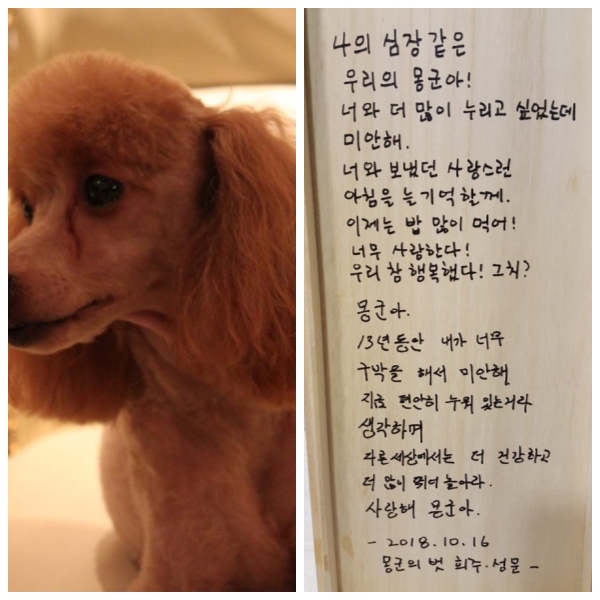 나의 심장같은
우리의 몽군아!
너와 더 많이 누리고 싶었는데
미안해.
너와 보냈던 사랑스런
아침을 늘 기억할께.
이제는 밥 많이 먹어!
너무 사랑한다!
우리 참 행복했다! 그치?
몽군아.
13년동안 내가 너무
구박을 해서 미안해
지금 편안히 누워 있는거라
생각하며
다른세상에서는 더 건강하고
더 많이 뛰어놀아라.
사랑해 몽군아.
- 2018.10.16
몽군의 벗 희주.성문 -